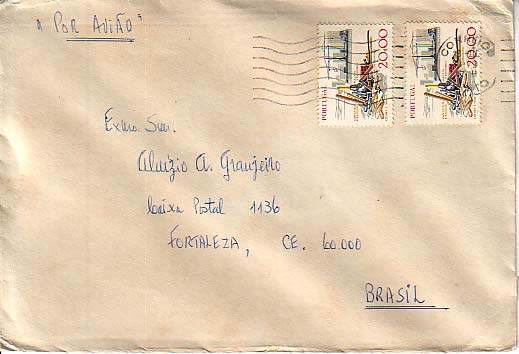 "POR AVIÃO"
PORTUGAL 20.00
PORTUGAL 20.00
Exmo. Snr.
Aluizio A. Granjeiro
Caixa Postal 1136
FORTALEZA, CE. 60.000
BRASIL